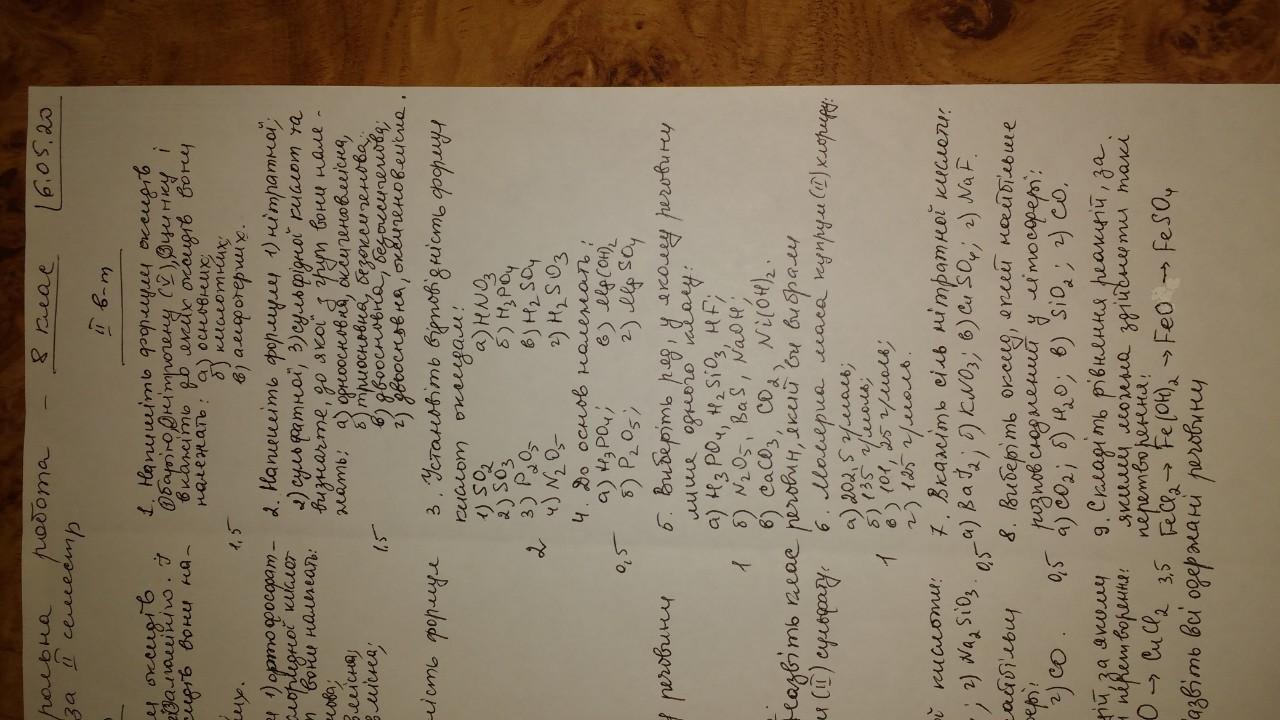 рольна робота - 8 клас 6.05.20
за II семестр
II в-т
1. Напишіть формули оксидів
1)Барію 2)Нітрогену (V), 3)цинку і
вкажіть до яких оксидів вони
належать: а) основних;
б) кислотних;
в) амфотерних.
1,5
2. Напишіть формули 1) нітратної;
2) сульфатної, 3) сульфідної кислот та
визначте, до якої з груп вони нале-
жать: а) одноосновна, оксигеновмісна,
б) триосновна, безоксигенова;
в) двоосновна, безоксигенова;
г) двоосновна, оксигеновмісна.
1,5
3. Установіть відповідність формул
кислот оксидам:
1) SO2 а) HNO3
2) SO3 б) H3PO4
3) P2O5 в) H2SO4
4) N2O5 г) H2SO3
2
4. До основ належать:
а) H3PO4; в) Mg(OH)2
б) P2O5; г) MgSO4
0,5
5. Виберіть ряд, у якому речовини
лише одного класу:
а) H3PO4, H2SiO3, HF;
б) N2O5, BaS, NaOH;
в) CaCO3, CO2, Ni(OH)2.
1
Назвіть клас речовин, який ви вибрали
6. Молярна маса купрум (II) хлориду:
а) 202,5 г/моль;
б) 135 г/моль;
в) 101,25 г/моль;
г) 125 г/моль.
1
7. Вкажіть сіль нітратної кислоти:
0,5 а) BaI2; б) KNO3; в) CuSO4; г) NaF.
8. Виберіть оксид, який найбільше
розповсюджений у літосфері:
0,5 а) CO2; б) H2O; в) SiO2; г) CO.
9. Складіть рівняння реакцій, за
якими можна здійснити такі
перетворення:
3,5 FeCl2 → Fe(OH)2 → FeO → FeSO4
азвіть всі одержані речовину
м оксидів
сидь вони на-
их.
и 1) ортофосфат-
лоридної кислот
вони належать:
нова;
вмісна;
вмісна;
ність формул
у речовини
и (II) сульфату:
ої кислоти:
; г) Na2SiO3.
найбільш
фері:
г) CO.
цій за якими
перетворення:
O → CuCl2